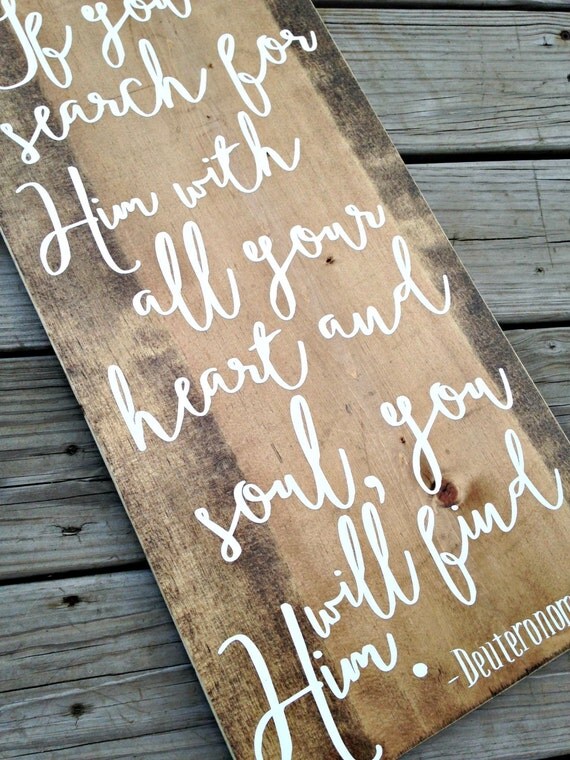 If you
search for
Him with
all your
heart and
soul, you
will find
Him.
-Deuteronom